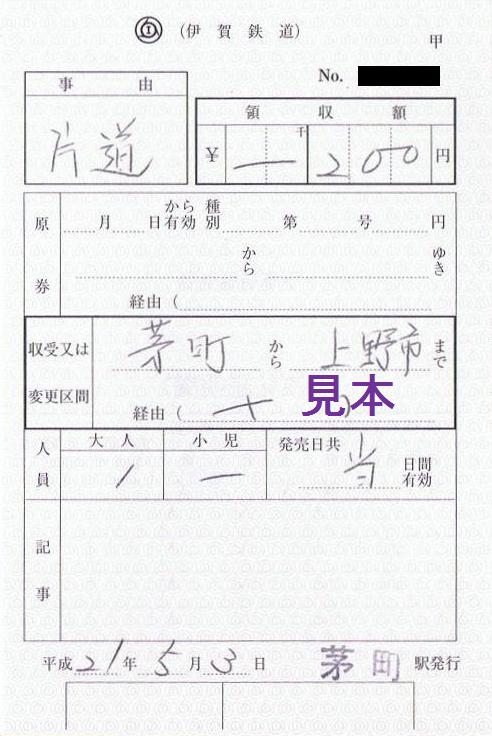 (伊賀鉄道)
甲
No.
事由
片道
領収額
千
¥ — 200 円
原券
月 日から有効 種別 第 号 円
から ゆき
経由 (
収受又は変更区間
茅町 から 上野市 まで
経由 ( )
見本
人員
大人 小児 発売日共
1 — 当 日間有効
記事
平成 21 年 5 月 3 日 茅町 駅発行